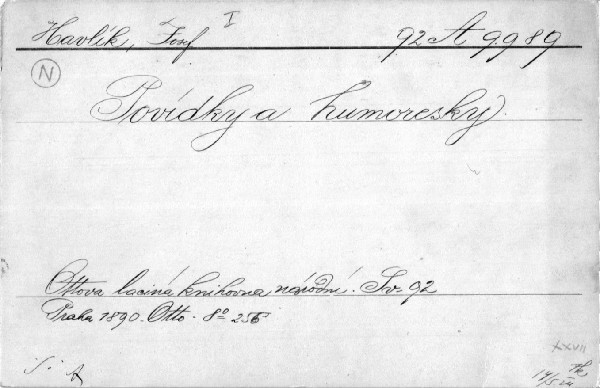 Havlík, Josef I 92 A 9989
N
Povídky a humoresky.
Ottova laciná knihovna národní. Sv. 92
Praha 1890. Otto. 8° 256
XXVII